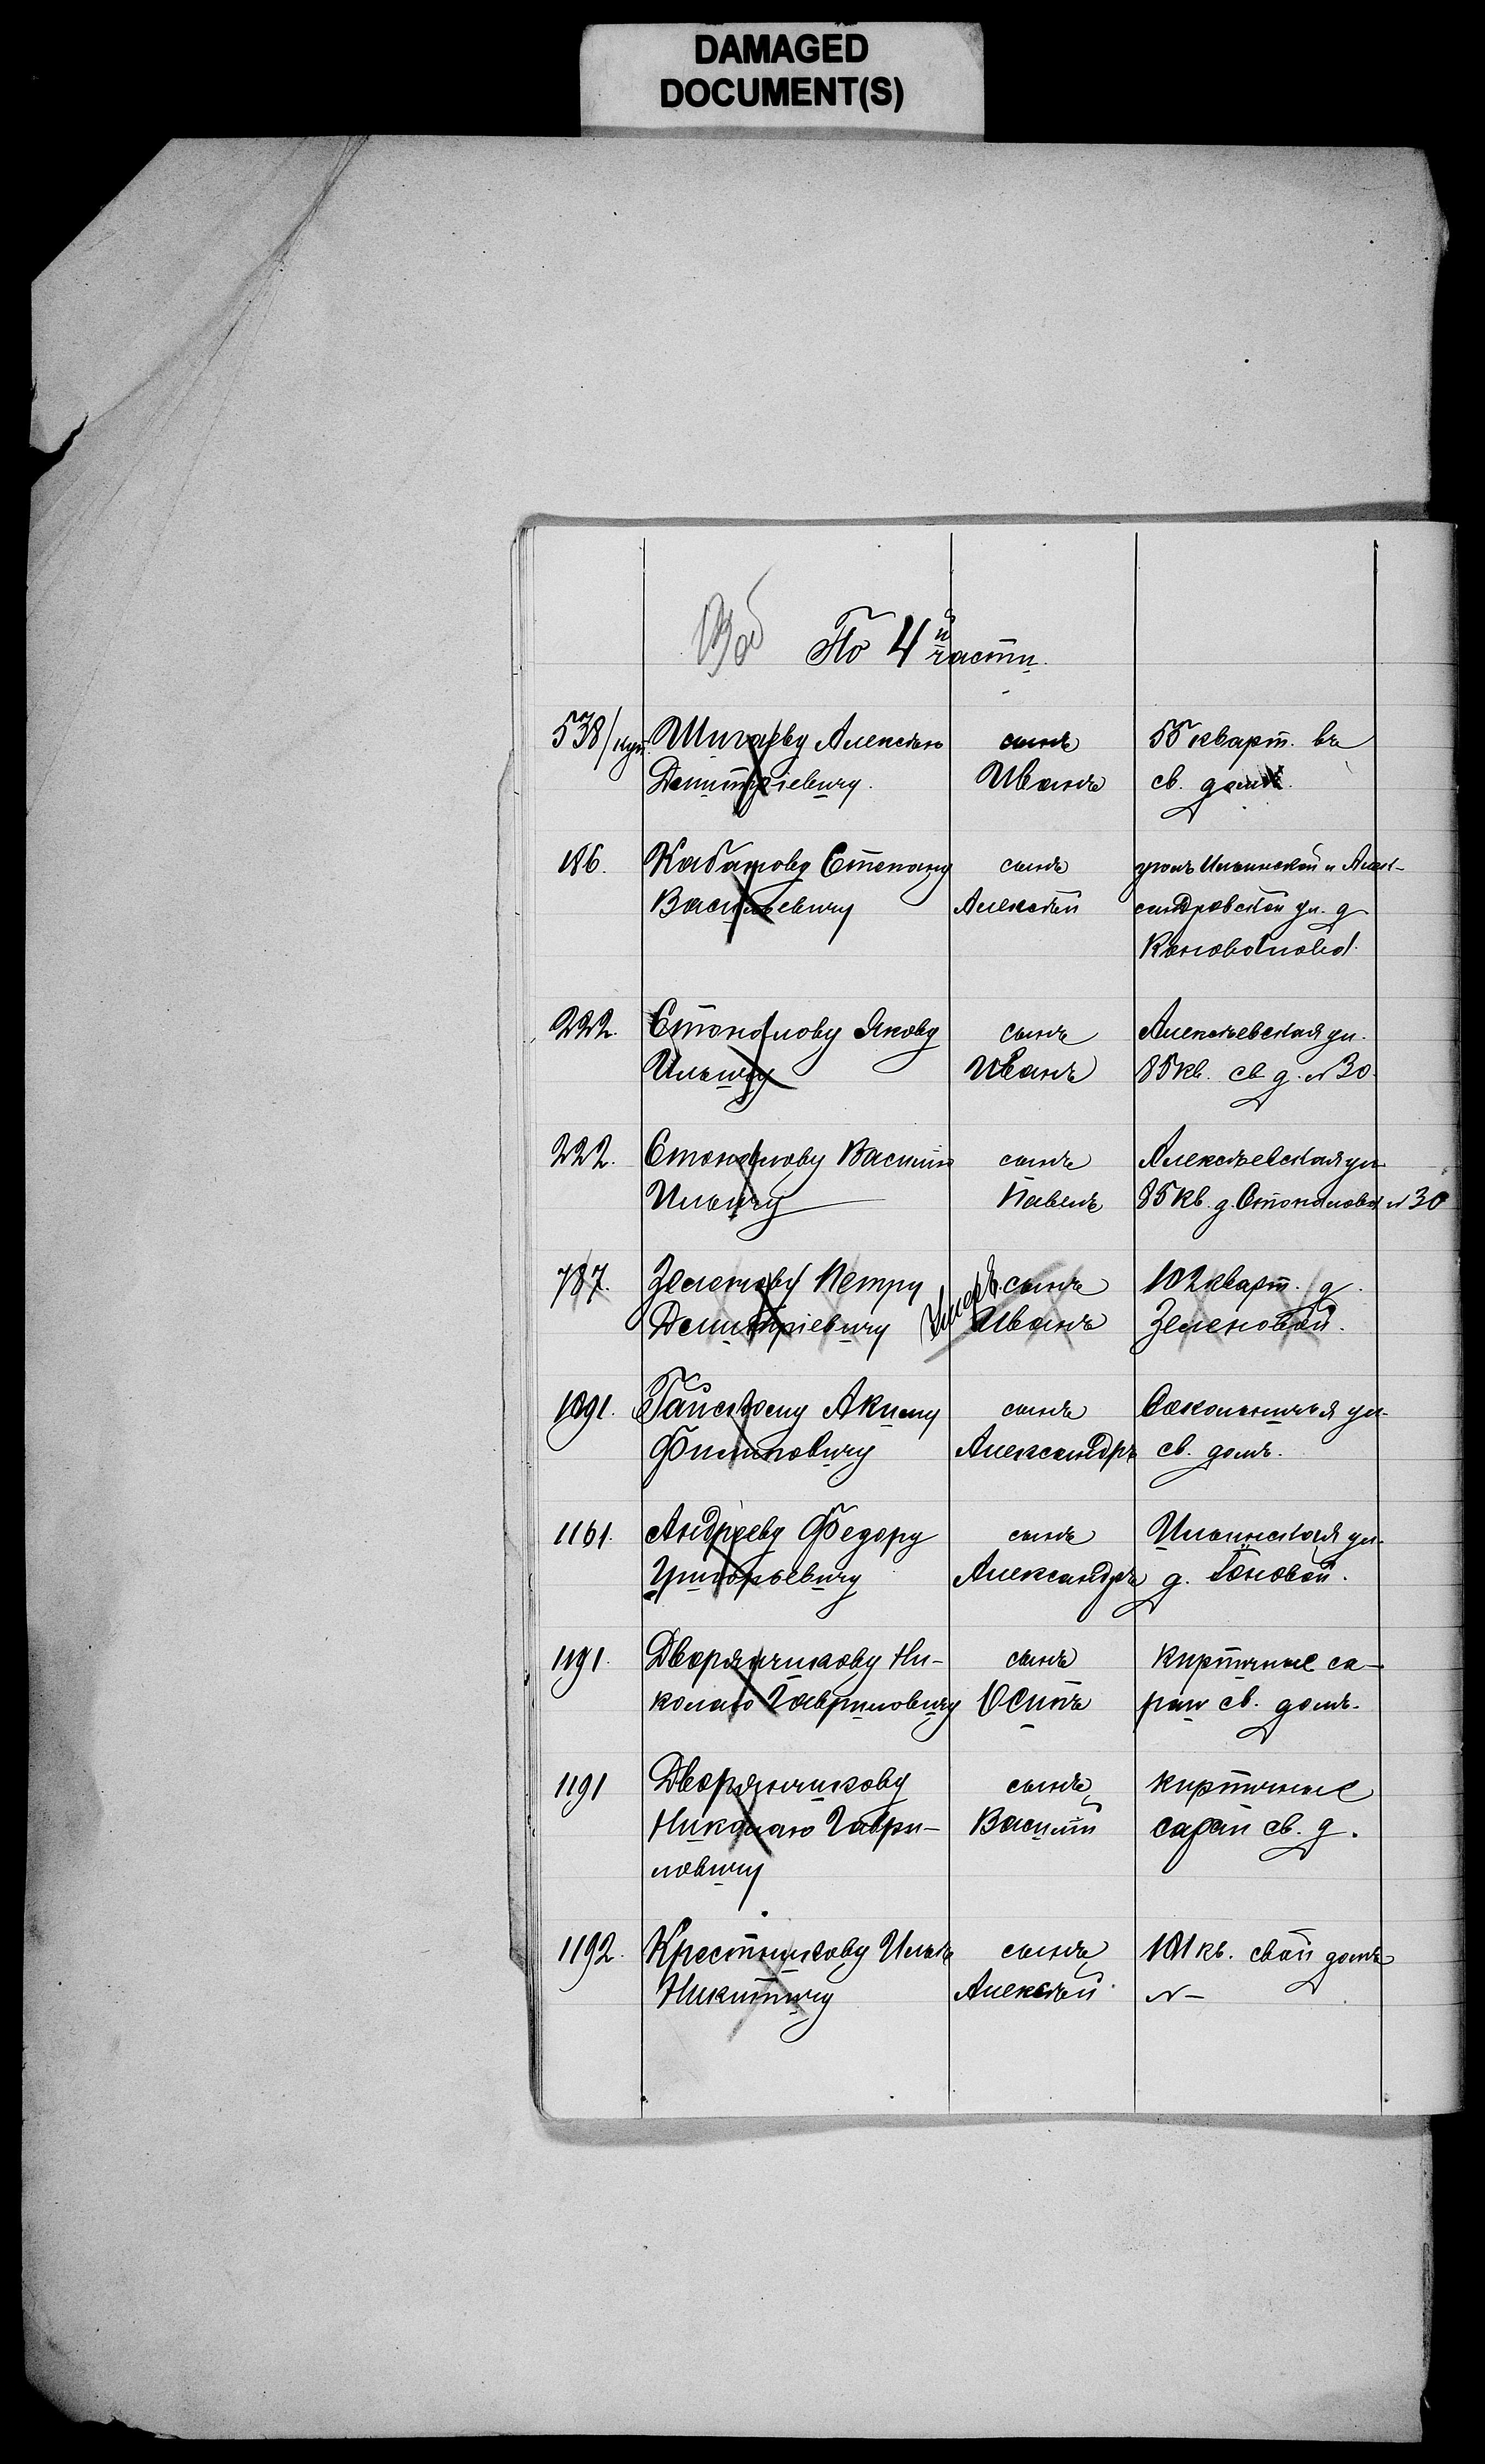 DAMAGED
DOCUMENT(S)
По 4й части.
538/куп. Шигаеву Алексѣю сынъ 55 кварт. въ
Дмитріевичу. Иванъ св. домѣ.
186. Кабанову Степану сынъ уголъ Ильинской и Алек-
Васильевичу Алексѣй сандровской ул. д
Коновалова.
222. Стоколову Якову сынъ Алексѣевская ул.
Ильичу Иванъ 85 кв. св д. № 30.
222. Стоколову Василію сынъ Алексѣевская ул
Ильичу Павелъ 85 кв. д. Стоколова № 30
787. Зеленову Петру Умеръ. сынъ 102 кварт. д.
Дмитріевичу Иванъ Зеленовой.
1091. Гайскому Акиму сынъ Сокольничья ул.
Филиповичу Александръ св. домъ.
1161. Андрееву Федору сынъ Ильинская ул.
Григорьевичу Александръ д. Гоновой.
1191. Дворянчикову Ни- сынъ Кирпичные са-
колаю Гавриловичу Осипъ раи св. домъ.
1191 Дворянчикову сынъ кирпичные
Николаю Гаври- Василій сараи св. д.
ловичу
1192. Крестникову Ильѣ сынъ 101 кв. свой домъ
Никитичу Алексѣй. № –